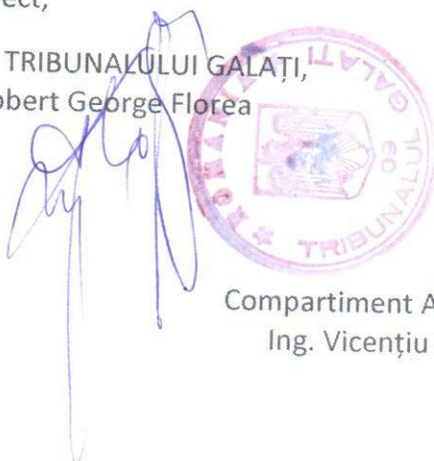 ect,
TRIBUNALULUI GALAȚI,
obert George Florea
ROMANIA * TRIBUNALUL GALAȚI
09
Compartiment A
Ing. Vicențiu